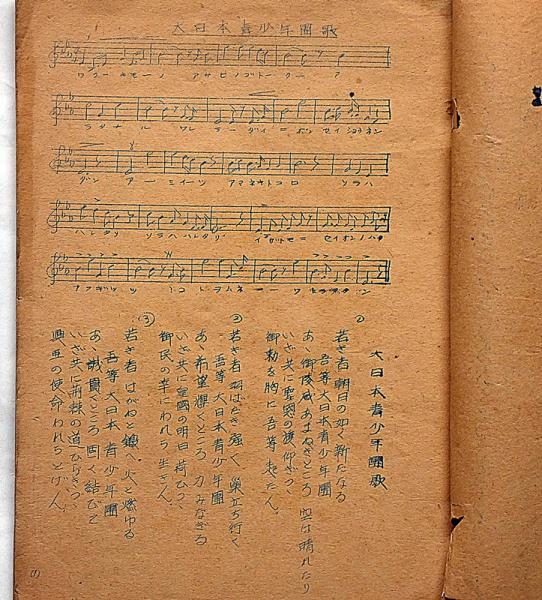 大日本青少年團歌
ワコーキモーノ アサヒノゴトークー ア
ラタナル ワレラーダイニホンセイショウネン
ダンアーミイーツアマネキトコロ ソラハ
大日本青少年團歌
①
若き者朝日の如く新たなる
吾等大日本青少年團
あゝ御稜威あまねきところ 空は晴れたり
いざ共に聖恩の旗仰ぎつゝ
御勅を胸に吾等起たん。
②
若き者羽ばたき強く巣立ち行く
吾等大日本青少年團
あゝ希望輝くところ力みなぎる
いざ共に皇國の明日荷ひつゝ
御民の幸にわれら生きん。
③
若き者はがねと鍛へ火と燃ゆる
吾等大日本青少年團
あゝ誠貫くところ固く結びて
いざ共に荊棘の道ひらきつゝ
興亜の使命われらとげん。
(1)